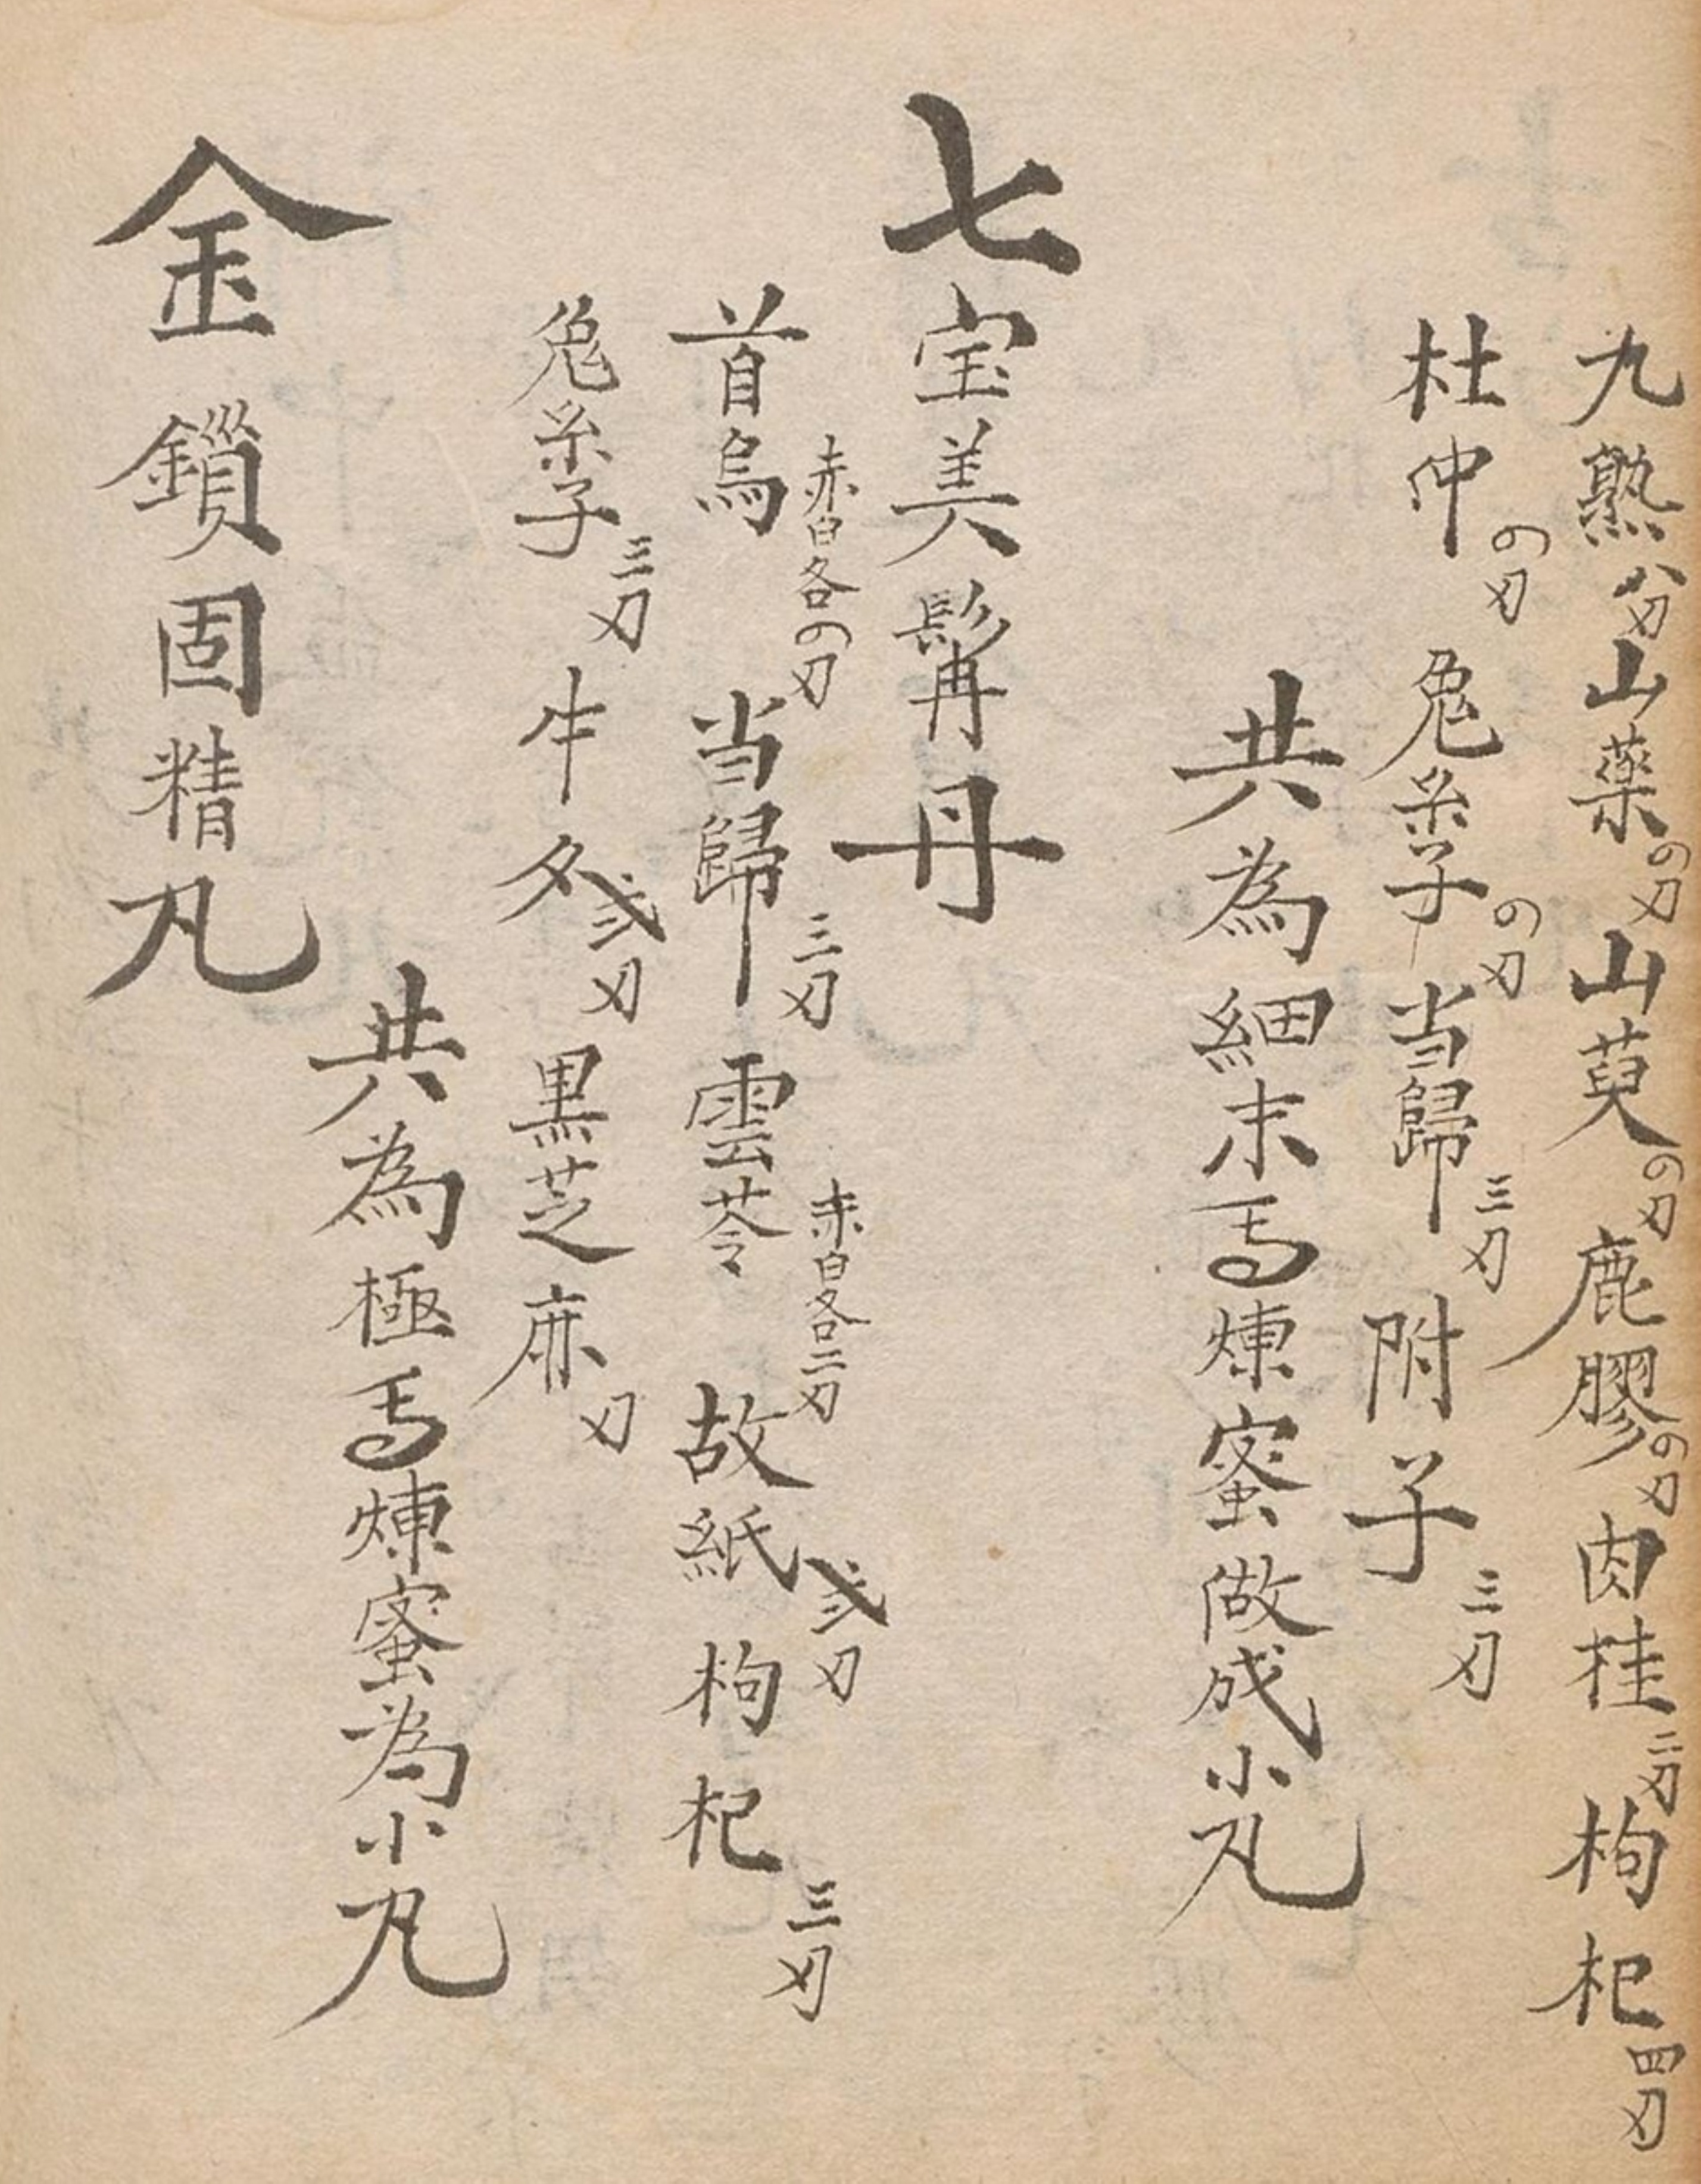 九熟八刄山藥四刄山萸四刄鹿膠四刄肉桂二刄枸杞四刄
杜仲四刄兔糸子四刄当歸三刄附子三刄
共為細末丏煉蜜做成小丸
七宝美髯丹
首烏赤白各四刄当歸三刄雲苓赤白各二刄故紙弍刄枸杞三刄
兔糸子三刄牛夕弍刄黒芝麻刄
共為極丏煉蜜為小丸
金鎖固精丸